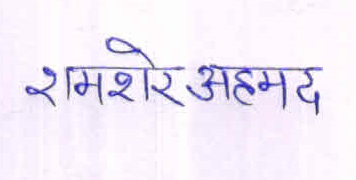 शमशेर अहमद